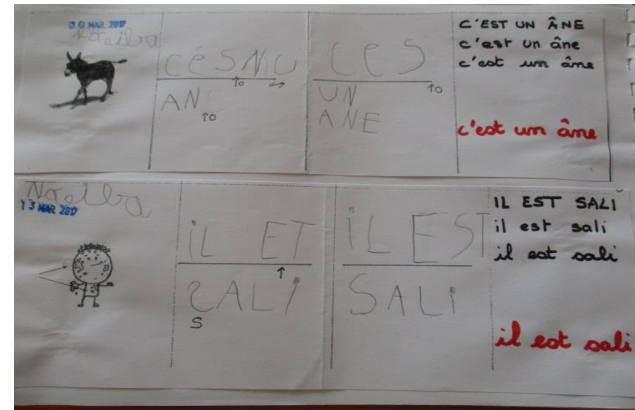 30 MAR. 2017
Noeilba
CÉSNU
AN
CES
UN
ANE
C'EST UN ÂNE
c'est un âne
c'est un âne
c'est un âne
Noeilba
13 MAR. 2017
iL ET
SALi
S
iL EST
SALi
IL EST SALI
il est sali
il est sali
il est sali